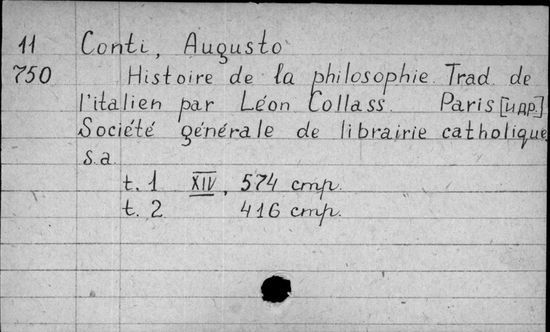 11 Conti, Augusto
750 Histoire de la philosophie. Trad. de
l'italien par Léon Collass. Paris [и др.]
Société générale de librairie catholique,
s.a.
t. 1 XIV, 574 стр.
t. 2 416 стр.